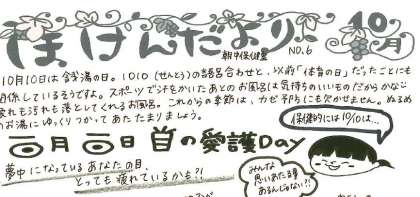 ほけんだより 10月
朝中保健室 NO.6
10月10日は銭湯の日。1010(せんとう)の語呂合わせと、以前「体育の日」だったことにも
関係しているそうですよ。スポーツで汗をかいたあとのお風呂は気持ちのいいものだからかな
疲れも汚れも落としてくれるお風呂。これからの季節は、カゼ予防にも欠かせません。ぬるめ
のお湯にゆっくりつかってあたたまりましょう。
保健的には10/10は…
目の愛護Day
夢中になっているあなたの目、
とっても疲れているかも?!
みんな
思いあたる事
あるんじゃない?!